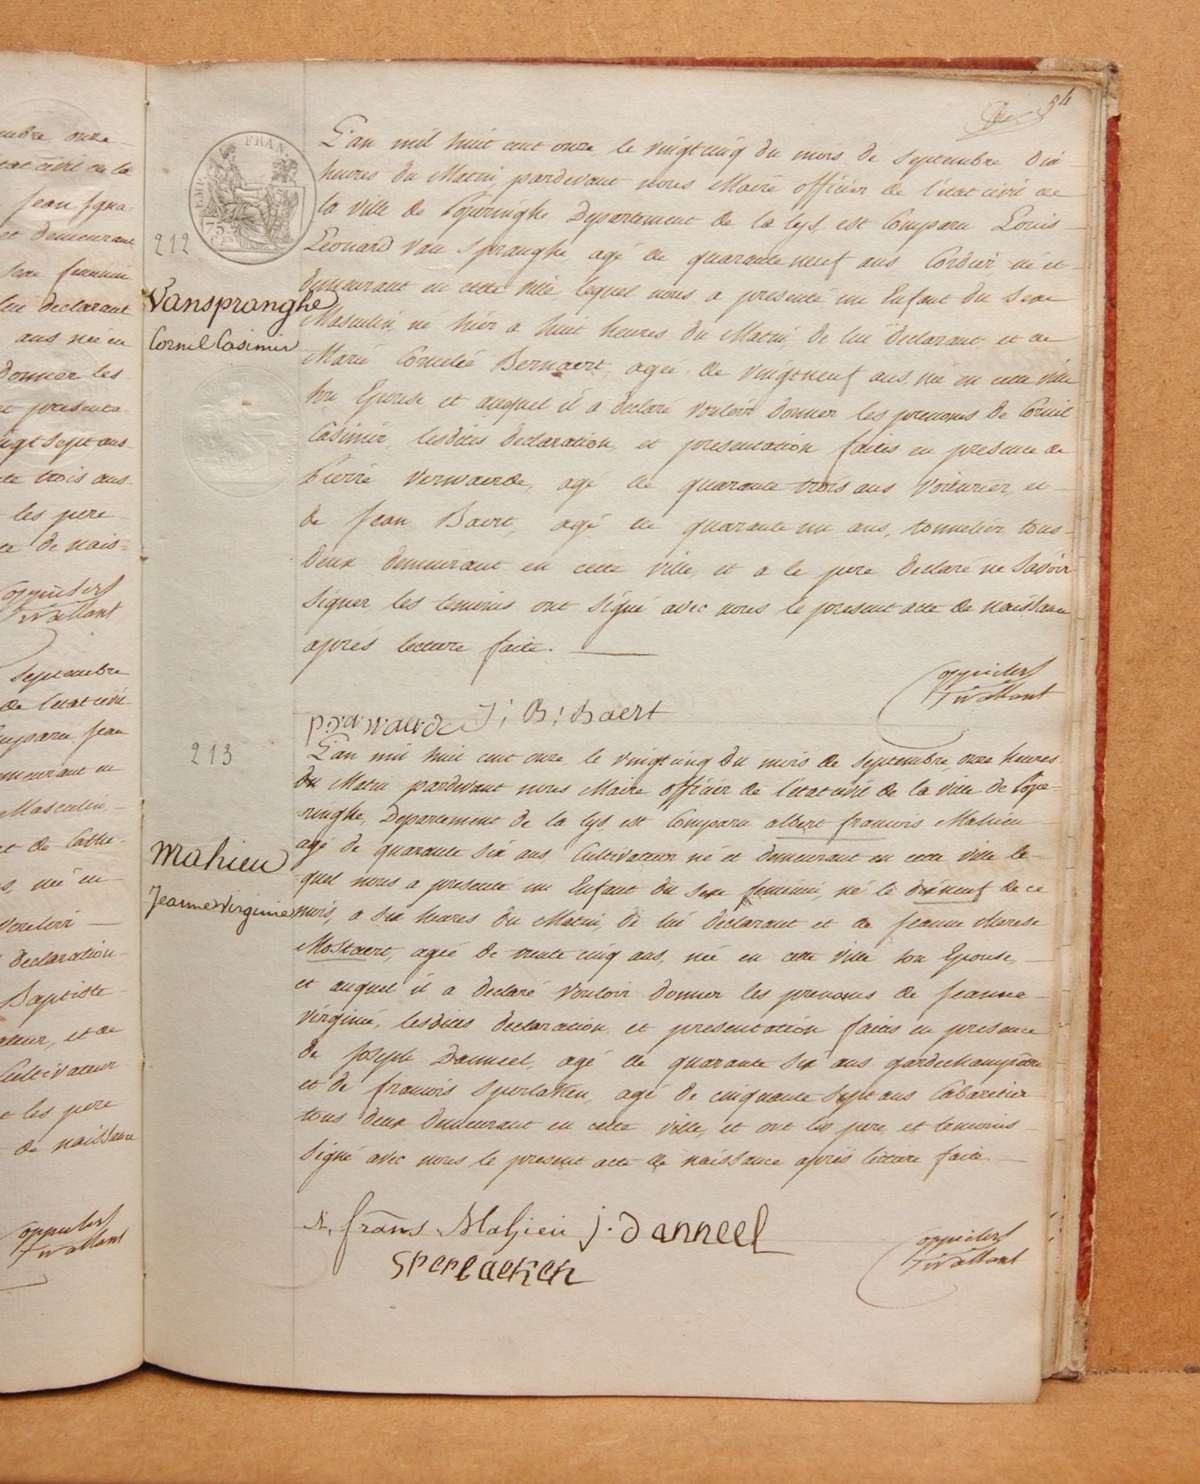 mbre onze
tat civil de la
Jean Igna-
et demeurant
Sexe feminin
lui declarant
ans née en
donner les
et presenta-
vingt Sept ans
te trois ans
les pere
te de nais=
Septembre
de l'etat civil
Comparu Jean
demeurant en
Masculin
et de Cathe-
née en
vouloir
Declaration
Baptiste
et de
Cultivateur
et les pere
de naissance
54
EMP. FRAN.
75
212
Vanspranghe
Cornil Casimir
L'an mil huit cent onze le vingtcinq du mois de Septembre Dix
heures du Matin, pardevant nous Maire officier de l'état civil de
la ville de Poperinghe Departement de la Lys, est Comparu Louis
Leonard Van Spranghe, agé de quarante neuf ans Cordier né et
demeurant en cette ville lequel nous a presenté un Enfant du Sexe
Masculin, né hier a huit heures du Matin, de lui Declarant et de
Marie Cornelie Bernaert, agée de vingtneuf ans, née en cette ville
Son Epouse et auquel il a declaré vouloir donner les prenoms de Cornil
Casimir, lesdites declaration et presentation faites en presence de
Pierre Verwaerde, agé de quarante trois ans Voiturier, et
de Jean Baert, agé de quarante un ans, tonnelier tous
Deux demeurant en cette ville, et a le pere declaré ne Savoir
Signer, les temoins ont Signé avec nous le present acte de naissance
après lecture faite.
J: B: Baert
213
Mahieu
Jeanne Virginie
L'an mil huit cent onze le vingtcinq du mois de Septembre, onze heures
du Matin pardevant nous Maire officier de l'état civil de la ville de Pope-
ringhe, Departement de la Lys est Comparu albert francois Mahieu
agé de quarante Six ans Cultivateur né et demeurant en cette ville le-
quel nous a presenté un Enfant du Sexe feminin, né le dixneuf de ce
mois, a Six heures du Matin, de lui declarant et de Jeanne therese
Mostaert, agée de trente cinq ans, née en cette ville Son Epouse,
et auquel il a declaré vouloir donner les prenoms de Jeanne
Virginie, lesdites declaration et presentation faites en presence
de Joseph Danneel, agé de quarante Six ans gardechampetre
et de francois Sperlaken, agé de cinquante Sept ans Cabaretier
tous deux demeurant en cette ville, et ont les pere et temoins
Signé avec nous le present acte de naissance après lecture faite
frans Mahieu J. Danneel